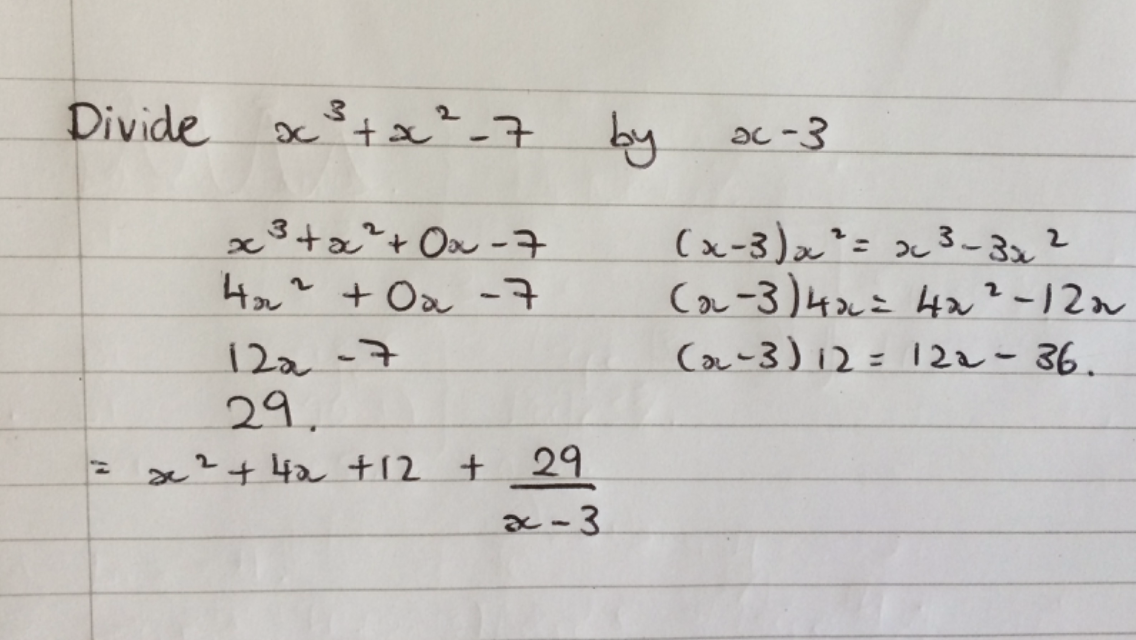 Divide x³ + x² - 7 by x - 3
x³ + x² + 0x - 7 (x - 3)x² = x³ - 3x²
4x² + 0x - 7 (x - 3)4x = 4x² - 12x
12x - 7 (x - 3)12 = 12x - 36.
29.
= x² + 4x + 12 + 29/(x - 3)